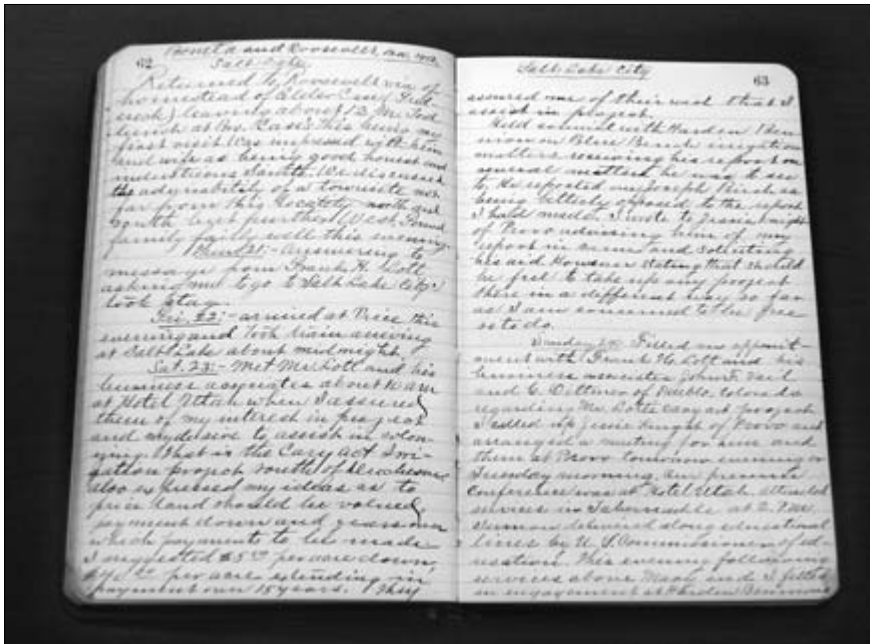 62 Boneta and Roosevelt,
Salt Lake
Returned to Roosevelt via of
homestead of Elder Case
leaving about 12 M.
lunch at Bro. Case's this being my
first visit Was impressed with him
and wife as being good honest and
industrious Saints. We discussed
the advisability of a townsite not
far from this locality north and
south
family fairly well this evening.
21:- answering to
message from Frank H. Lott
asking me to go to Salt Lake City I
took stage.
Fri. 22:- arrived at Price this
evening and took train arriving
at Salt Lake about midnight.
Sat. 23:- Met Mr Lott and his
business associates about 10 am
at Hotel Utah when I assured
them of my interest in project
and my desire to assist in colon-
izing. What is the Cary act Irri-
gation project south of
also expressed my ideas as to
price land should be valued,
payment down and years in
which payments to be made
I suggested $5.00 per acre down,
per acre extending in
payment over 15 years. They
Salt Lake City
63
assured me of their wish that I
assist in project.
Held council with Harden Ben-
nion on Blue Bench irrigation
matters receiving his report on
general matters he was to see
to. He reported one Joseph Birch as
being bitterly opposed to the report
I had made. I wrote to Jessie Knight
of Provo advising him of my
report in and soliciting
his aid. However stating that should
he feel to take up any project
there in a different way so far
as I am concerned to be free
so to do.
Sunday 24: Filled an appoint-
ment with Frank H. Lott and his
business associates John F. Vail
and C. Dittmer of Pueblo, Colorado
regarding Mr. Lotts Cary act project
I called up Jessie Knight of Provo and
arranged a meeting for him and
them at Provo tomorrow evening or
Tuesday morning. Our present
Conference was at Hotel Utah. Attended
services in Tabernacle at 2. P.M.
Sermon delivered along educational
lines by U. S. Commissioner of ed-
ucation. This evening following
services above Mary and I filled
an engagement at Harden Bennions